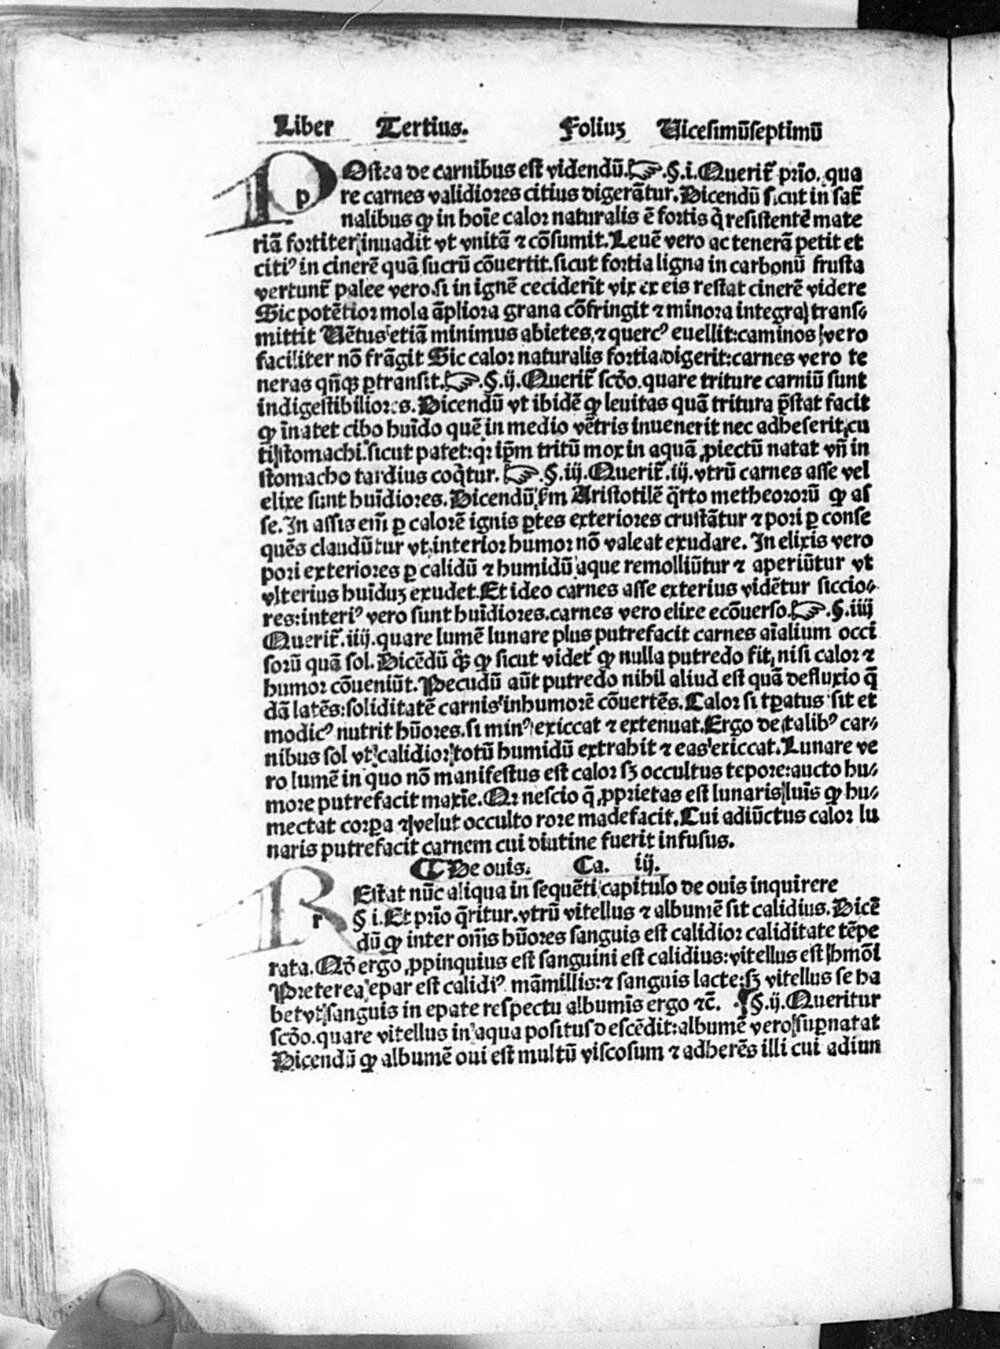 Liber Tertius. Foliuꝫ Vicesimūseptimū
POstea de carnibus est videndū.☞.§.i.Querit᷑ prīo. qua
re carnes validiores citius digerāt̄ur.Dicendū sicut in fat᷑
nalibus ꝙ in hoīe calor naturalis ē fortis q̄ resistentē mate
riā fortiter inuadit vt vnitā ⁊ cōsumit.Leuē vero ac tenerā petit et
citiꝰ in cinerē quā sucrū cōuertit.sicut fortia ligna in carbonū frusta
vertunt᷑ palee vero.si in ignē ceciderit vix ex eis restat cinerē videre
Sic potētior mola āpliora grana cōfringit ⁊ minora integra trans⸗
mittit Uētus etiā minimus abietes, ⁊ quercꝰ euellit:caminos vero
faciliter nō frāgit Sic calor naturalis fortia digerit:carnes vero te
neras qn̄qꝫ ꝑtransit.☞.§.ij.Querit᷑ scd̄o.quare triture carniū sunt
indigestibiliores.Dicendū vt ibidē ꝙ leuitas quā tritura p̄stat facit
ꝙ īnatet cibo hūido quē in medio vētris inuenerit nec adheserit,cu
ti stomachi.sicut patet:qꝛ ip̄m tritū mox in aquā ꝓiectū natat vn̄ in
stomacho tardius coq̄tur.☞.§.iij.Querit᷑.iij.vtrū carnes asse vel
elixe sunt hūidiores.Dicendū ẜm Aristotilē q̄rto metheororū ꝙ as
se.In assis em̄ ꝑ calorē ignis ꝑtes exteriores crustātur ⁊ pori ꝑ conse
quēs claudūtur vt interior humor nō valeat exudare. In elixis vero
pori exteriores ꝑ calidū ⁊ humidū aque remolliūtur ⁊ aperiūtur vt
vlterius hūiduꝫ exudet.Et ideo carnes asse exterius vidētur siccio⸗
res:interiꝰ vero sunt hūidiores.carnes vero elixe ecōuerso.☞.§.iiij
Querit᷑.iiij.quare lumē lunare plus putrefacit carnes aīalium occi
sorū quā sol. Dicēdū ꝙ sicut videt᷑ ꝙ nulla putredo fit, nisi calor ⁊
humor cōueniūt.Pecudū aūt putredo nihil aliud est quā defluxio q̄
dā latēs:soliditatē carnis inhumorē cōuertēs.Calor si tꝑatus sit et
modicꝰ nutrit hūores.si minꝰ exiccat ⁊ extenuat.Ergo de talibꝰ car⸗
nibus sol vt calidior totū humidū extrahit ⁊ eas exiccat.Lunare ve
ro lumē in quo nō manifestus est calor sꝫ occultus tepore:aucto hu⸗
more putrefacit maxīe.Qꝛ nescio q̄ ꝓprietas est lunaris luīs ꝙ hu⸗
mectat corꝑa ⁊ velut occulto rore madefacit.Cui adiūctus calor lu
naris putrefacit carnem cui diutine fuerit infusus.
⸿ De ouis. Ca. iij.
REstat nūc aliqua in sequēti capitulo de ouis inquirere
§ i.Et prīo q̄ritur.vtrū vitellus ⁊ albumē sit calidius.Dicē
dū ꝙ inter om̄is hūores sanguis est calidior caliditate tēpe
rata.Qd̄ ergo ꝓpinquius est sanguini est calidius:vitellus est hmōi
Preterea epar est calidiꝰ māmillis:⁊ sanguis lacte:sꝫ vitellus se ha
bet vt sanguis in epate respectu albumīs ergo ⁊c̄. ¶§.ij.Queritur
scd̄o.quare vitellus in aqua positus descēdit:albumē vero suꝑnatat
Dicendū ꝙ albumē oui est multū viscosum ⁊ adherēs illi cui adiun